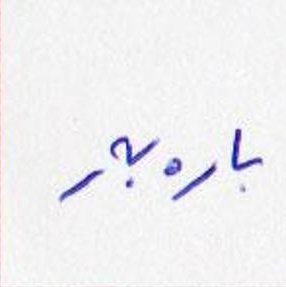 باره بر